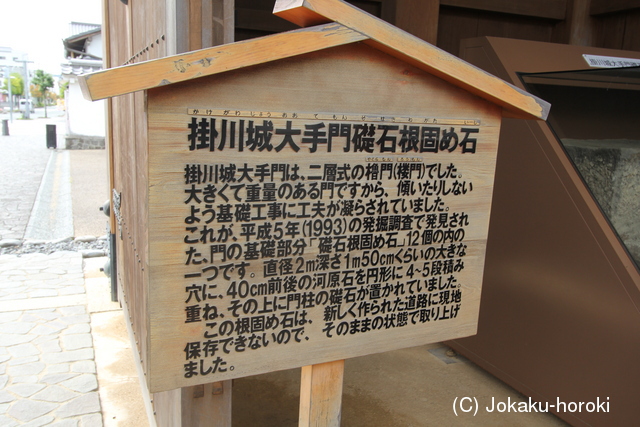 かけがわじょうおおてもんそせきねがためいし
掛川城大手門礎石根固め石
やぐらもん ろうもん
掛川城大手門は、二層式の櫓門(楼門)でした。
大きくて重量のある門ですから、傾いたりしない
よう基礎工事に工夫が凝らされていました。
これが、平成5年(1993)の発掘調査で発見され
た、門の基礎部分「礎石根固め石」12個の内の
一つです。直径2m深さ1m50cmくらいの大きな
穴に、40cm前後の河原石を円形に4~5段積み
重ね、その上に門柱の礎石が置かれていました。
この根固め石は、新しく作られた道路に現地
保存できないので、そのままの状態で取り上げ
ました。
掛川城大手門
(C) Jokaku-horoki